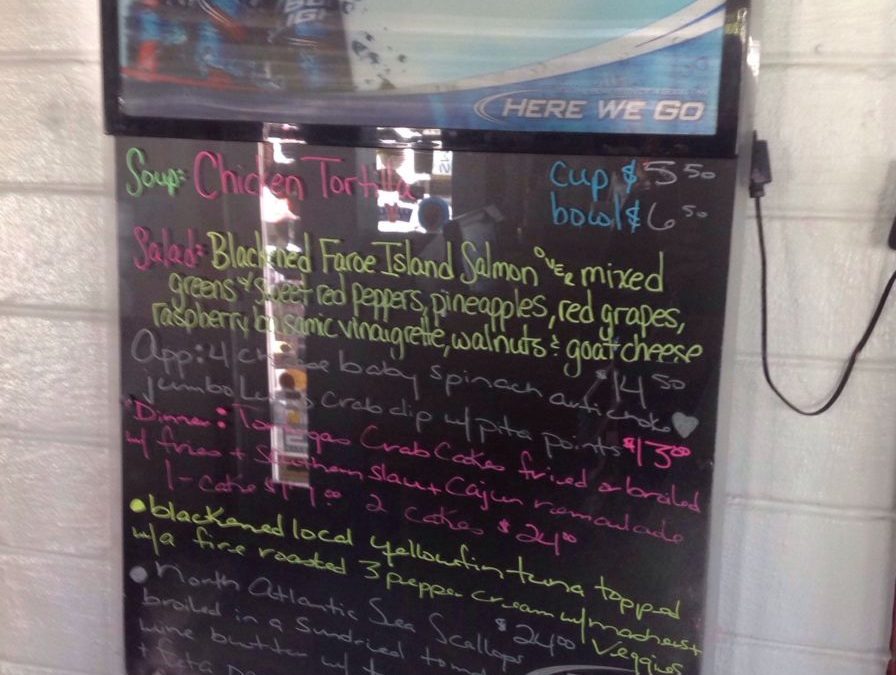 HERE WE GO
Soup: Chicken Tortilla cup $5 50
bowl $6 50
Salad: Blackened Faroe Island Salmon over mixed
greens & sweet red peppers, pineapples, red grapes,
raspberry balsamic vinaigrette, walnuts & goat cheese
$14 50
App: 4 cheese baby spinach antichoke
jumbo Lump Crab dip w/ pita points $13 00
Dinner: Crab Cakes fried or broiled
w/ fries + Southern slaw + Cajun remoulade
1 - cake 2 cakes $24 00
• blackened local yellowfin tuna topped
w/ a fire roasted 3 pepper cream w/ mashers +
Veggies
$24 00
• North Atlantic Sea Scallops
broiled in a sundried
wine butter w/
+ feta